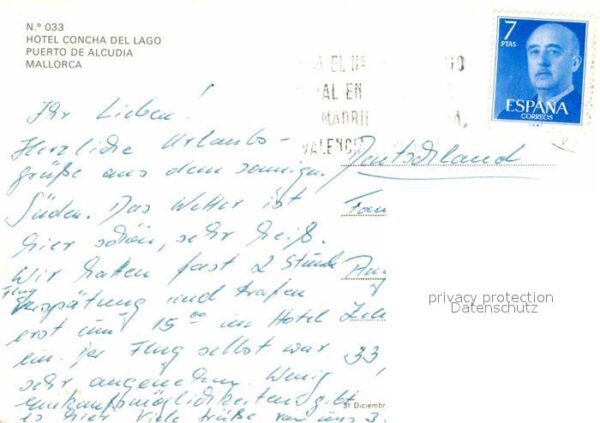 N.º 033
HOTEL CONCHA DEL LAGO
PUERTO DE ALCUDIA
MALLORCA
7
PTAS
ESPAÑA
CORREOS
MADRI
VALENC
Ihr Lieben!
Herzliche Urlaubs-
grüße aus dem sonnigen
Süden. Das Wetter ist
hier schön, sehr heiß.
Wir hatten fast 2 Stunde
Flug
verspätung und trafen
erst um 15 00 im Hotel
ein. Der Flug selbst war
sehr angenehm. Wenig
Einkaufsmöglichkeiten gibt
es hier. Viele Grüße von uns 3.
Deutschland
Fam
33,
31 Diciembr
privacy protection
Datenschutz